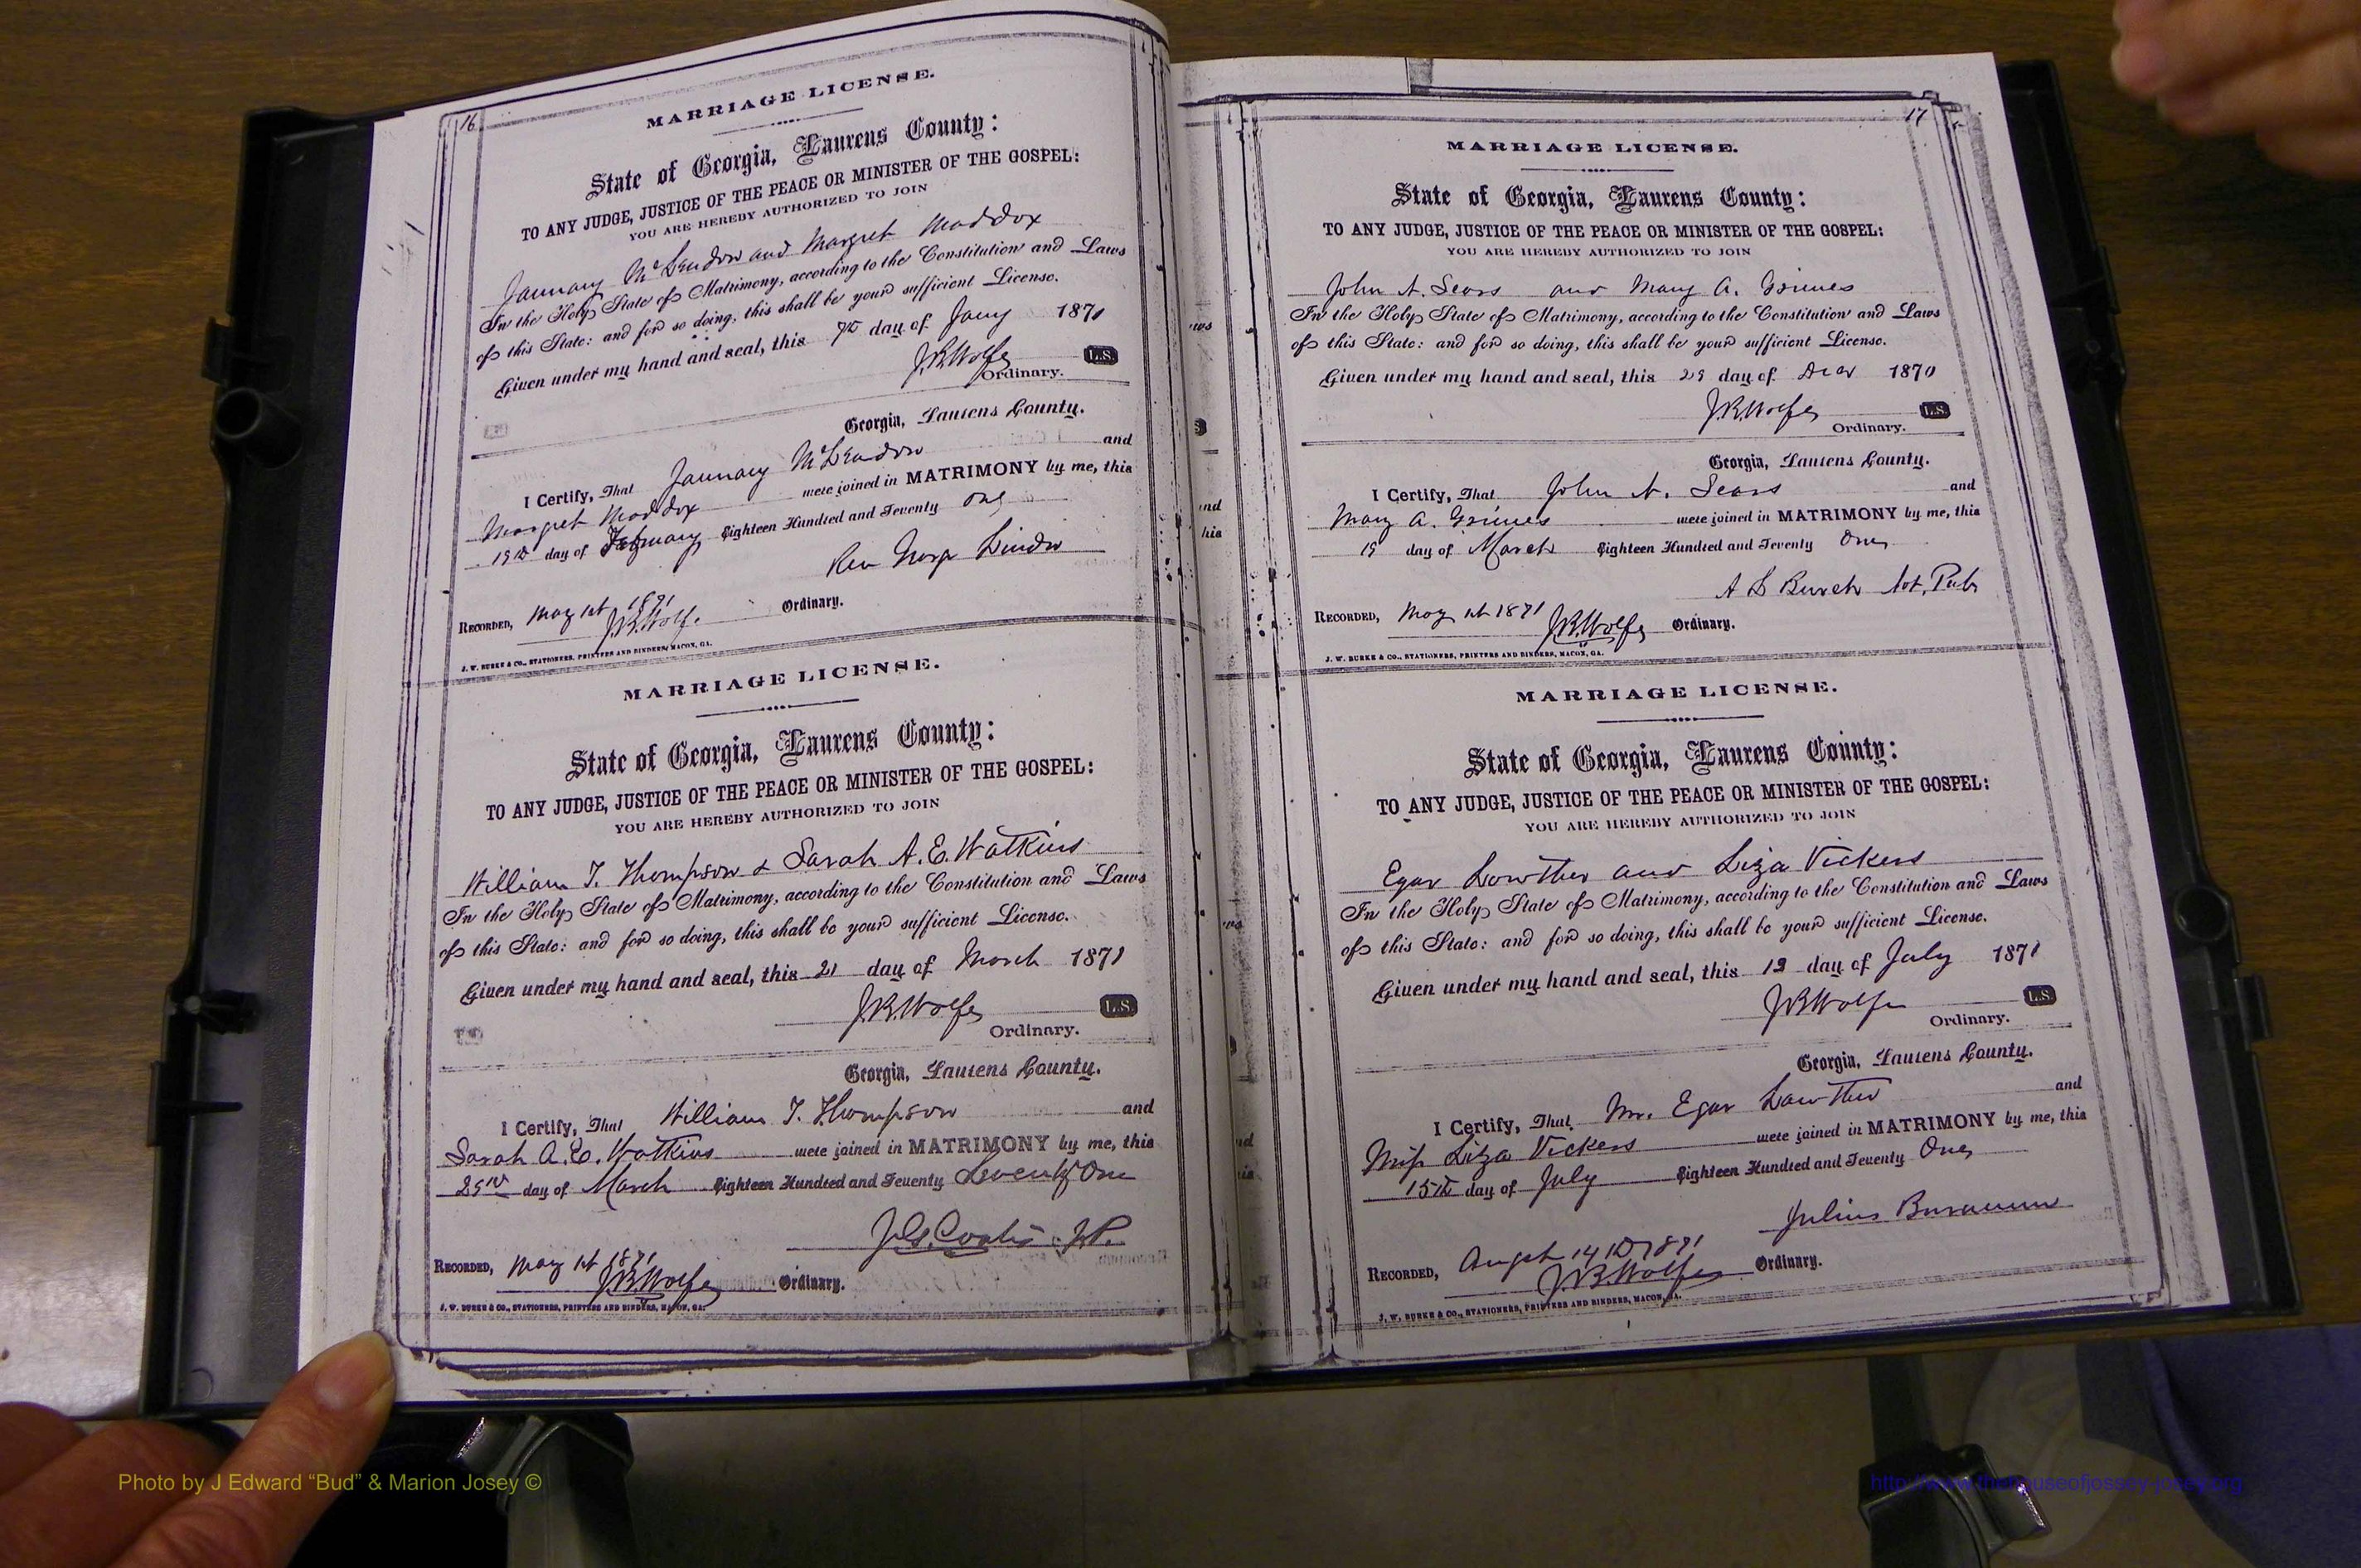 16
MARRIAGE LICENSE.
State of Georgia, Laurens County:
TO ANY JUDGE, JUSTICE OF THE PEACE OR MINISTER OF THE GOSPEL:
YOU ARE HEREBY AUTHORIZED TO JOIN
January McLendon and Margret Maddox
In the Holy State of Matrimony, according to the Constitution and Laws
of this State: and for so doing, this shall be your sufficient License.
Given under my hand and seal, this 7th day of Jany 1871
J.B.Wolfe L.S.
Ordinary.
Georgia, Laurens County.
I Certify, That January McLendon and
Margret Maddox were joined in MATRIMONY by me, this
19th day of February Eighteen Hundred and Seventy one
Rev
RECORDED, May 1st 1871 J.B.Wolfe Ordinary.
J. W. BURKE & CO., STATIONERS, PRINTERS AND BINDERS, MACON, GA.
MARRIAGE LICENSE.
State of Georgia, Laurens County:
TO ANY JUDGE, JUSTICE OF THE PEACE OR MINISTER OF THE GOSPEL:
YOU ARE HEREBY AUTHORIZED TO JOIN
William T. Thompson & Sarah A. E. Watkins
In the Holy State of Matrimony, according to the Constitution and Laws
of this State: and for so doing, this shall be your sufficient License.
Given under my hand and seal, this 21 day of March 1871
J.B.Wolfe L.S.
Ordinary.
Georgia, Laurens County.
I Certify, That William T. Thompson and
Sarah A. E. Watkins were joined in MATRIMONY by me, this
day of March Eighteen Hundred and Seventy Seventy One
J.P.
RECORDED, May 1st 1871 J.B.Wolfe Ordinary.
J. W. BURKE & CO., STATIONERS, PRINTERS AND BINDERS, MACON, GA.
17
MARRIAGE LICENSE.
State of Georgia, Laurens County:
TO ANY JUDGE, JUSTICE OF THE PEACE OR MINISTER OF THE GOSPEL:
YOU ARE HEREBY AUTHORIZED TO JOIN
John N. Sears and Mary A. Grimes
In the Holy State of Matrimony, according to the Constitution and Laws
of this State: and for so doing, this shall be your sufficient License.
Given under my hand and seal, this 29 day of 1870
J.B.Wolfe L.S.
Ordinary.
Georgia, Laurens County.
I Certify, That John N. Sears and
Mary A. Grimes were joined in MATRIMONY by me, this
19 day of March Eighteen Hundred and Seventy One
A D Burch Not, Pub
RECORDED, May 1st 1871 J.B.Wolfe Ordinary.
J. W. BURKE & CO., STATIONERS, PRINTERS AND BINDERS, MACON, GA.
MARRIAGE LICENSE.
State of Georgia, Laurens County:
TO ANY JUDGE, JUSTICE OF THE PEACE OR MINISTER OF THE GOSPEL:
YOU ARE HEREBY AUTHORIZED TO JOIN
Egar Lowther and Liza Vickers
In the Holy State of Matrimony, according to the Constitution and Laws
of this State: and for so doing, this shall be your sufficient License.
Given under my hand and seal, this day of July 1871
J.B.Wolfe L.S.
Ordinary.
Georgia, Laurens County.
I Certify, That Mr. Egar Lowther and
Miss Liza Vickers were joined in MATRIMONY by me, this
15th day of July Eighteen Hundred and Seventy One
Julius
RECORDED, Augst 14th 1871 J.B.Wolfe Ordinary.
J. W. BURKE & CO., STATIONERS, PRINTERS AND BINDERS, MACON, GA.
Photo by J Edward “Bud” & Marion Josey ©
http://www.thehouseofjossey-josey.org